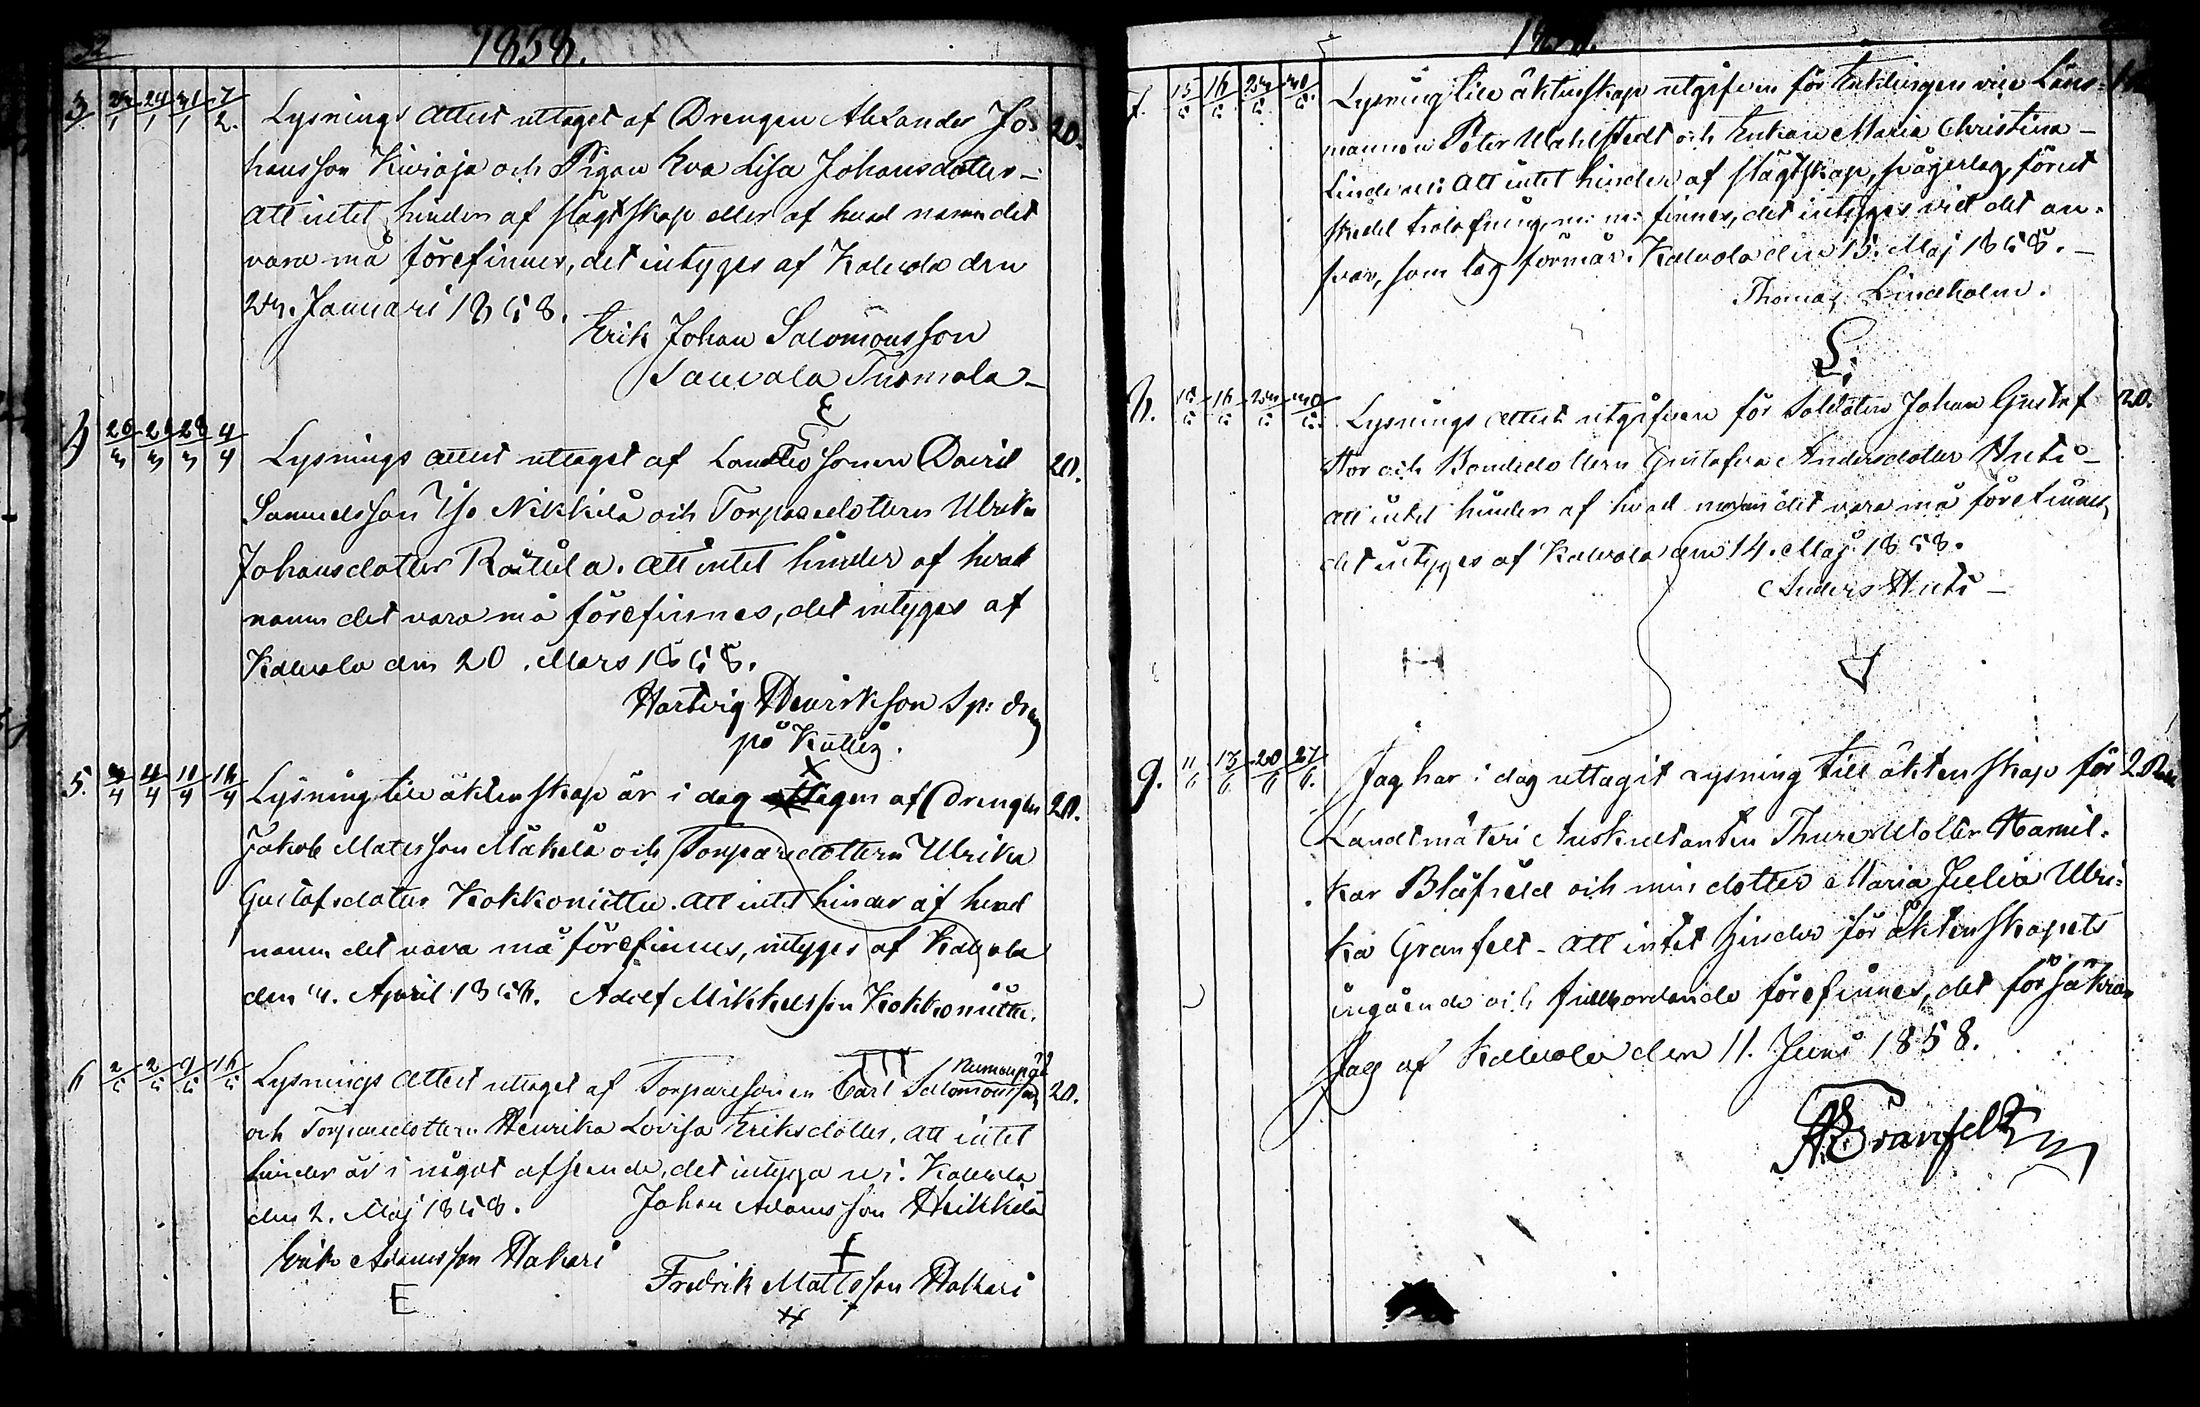 32
1858.
3. 23/1 24/1 31/1 7/2. Lysnings Attest uttaget af Drengen Alexander Jo= 20.
hansson Kivioja och Pigan Eva Lisa Johansdotter –
Att intet hinder af slägtskap eller af hvad namn det
vara må förefinnes, det intyges af Kalvola den
23. Januari 1858.
Erik Johan Salomonsson
Sauvala Tuomola –
4 20/3 21/3 28/3 4/4 Lysnings attest uttaget af Landbosonen David 20.
Samuelsson Iso Nikkilä och Torparedottern Ulrika
Johansdotter Rättilä. Att intet hinder af hvad
namn det vara må förefinnes, det intyges af
Kalvola den 20. Mars 1858.
Hartvig Henriksson Sp: dreng
på Kutila.
5. 4/4 11/4 18/4 Lysning till äktenskap är i dag tagen af Drengen 20.
Jakob Matsson Mäkelä och Torparedottern Ulrika
Gustafsdotter Kokkoniittu. Att intet hinder af hvad
namn det vara må förefinnes, intyges af Kalvola
den 4. April 1858. Adolf Mikkelsson Kokkoniittu.
6 2/5 2/5 9/5 16/5 Lysnings Attest uttaget af Torparesonen Carl Salomonsson 20.
och Torparedottern Henrika Lovisa Eriksdotter, att intet
hinder är i något afseende, det intyga vi: Kalvola
den 2. Maj 1858. Johan Adamsson Heikkilä
Erik Adamsson Hakari
E Fredrik Mattsson Hakari
7. 15/5 16/5 Lysning till äktenskap utgifven för Enklingen vice Läns=
mannen Peter Wahlstedt och Enkan Maria Christina –
att intet hinder af slägtskap, svågerlag, förut
skedd trolofning, m: m: finnes, det intyges vid det an=
svar, som lag förmår. Kalvola den 15. Maj 1858. –
Thomas Lindholm.
8. 15/5 16/5 Lysnings Attest utgifven för Soldaten Johan Gustaf 20.
Stor och Bondedottern Gustafva Andersdotter Huti –
att intet hinder af hvad namn det vara må förefinnes,
det intyges af Kalvola den 14. Maj 1858.
Anders Huti –
9. 11/6 13/6 20/6 27/6. Jag har i dag uttagit Lysning till äktenskap för
Landtmäteri Auskultanten Thure Wolter Hamil=
kar Blåfield och min dotter Maria Julia Ulri=
ka Granfelt – att intet hinder för äktenskapets
ingående och fullbordande förefinnes, det försäkrar
Jag af Kalvola den 11. Juni 1858.
Granfelt